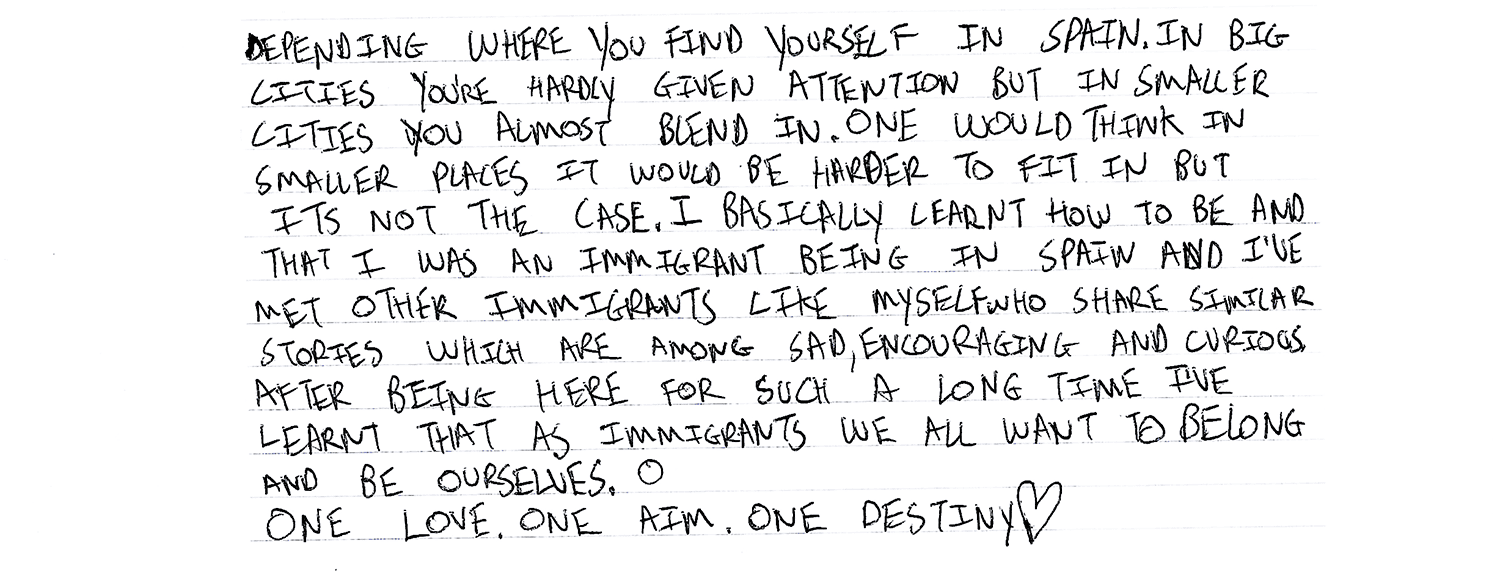 DEPENDING WHERE YOU FIND YOURSELF IN SPAIN. IN BIG
CITIES YOU'RE HARDLY GIVEN ATTENTION BUT IN SMALLER
CITIES YOU ALMOST BLEND IN. ONE WOULD THINK IN
SMALLER PLACES IT WOULD BE HARDER TO FIT IN BUT
ITS NOT THE CASE. I BASICALLY LEARNT HOW TO BE AND
THAT I WAS AN IMMIGRANT BEING IN SPAIN AND I'VE
MET OTHER IMMIGRANTS LIKE MYSELF WHO SHARE SIMILAR
STORIES WHICH ARE AMONG SAD, ENCOURAGING AND CURIOUS.
AFTER BEING HERE FOR SUCH A LONG TIME I'VE
LEARNT THAT AS IMMIGRANTS WE ALL WANT TO BELONG
AND BE OURSELVES. O
ONE LOVE. ONE AIM. ONE DESTINY♡